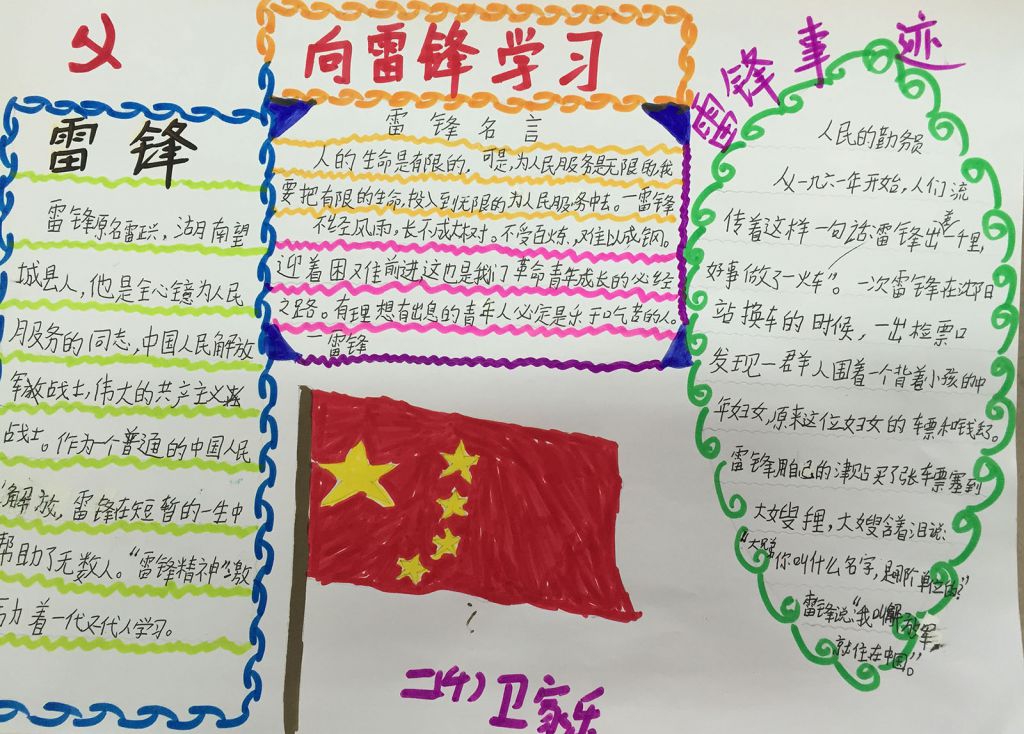 向雷锋学习
雷锋
雷锋原名雷正兴，湖南望
城县人，他是全心镜为人民
月服务的同志，中国人民解放
军放战士，伟大的共产主义
战士。作为一个普通的中国人民
解放，雷锋在短暂的一生中
帮助了无数人。“雷锋精神”激
励着一代又代人学习。
雷锋名言
人的生命是有限的，可是，为人民服务是无限的，我
要把有限的生命，投入到无限的为人民服务中去。—雷锋
不经风雨，长不成大树。不受百炼，难以成钢。
迎着困难前进，这也是我们革命青年成长的必经
之路。有理想有出息的青年人必定是乐于吃苦的人。
—雷锋
雷锋事迹
人民的勤务员
从一九六一年开始，人们流
传着这样一句话：雷锋出差一千里，
好事做了一火车”。一次雷锋在沈阳
站换车的时候，一出检票口
发现一群人围着一个背着小孩的中
年妇女，原来这位妇女的车票和钱
雷锋用自己的津贴买了张车票塞到
大嫂狸，大嫂含着泪说：
“大 你叫什么名字，是哪个单位的？”
雷锋说“我叫解放军，
就住在中国”。
二(4)卫家乐